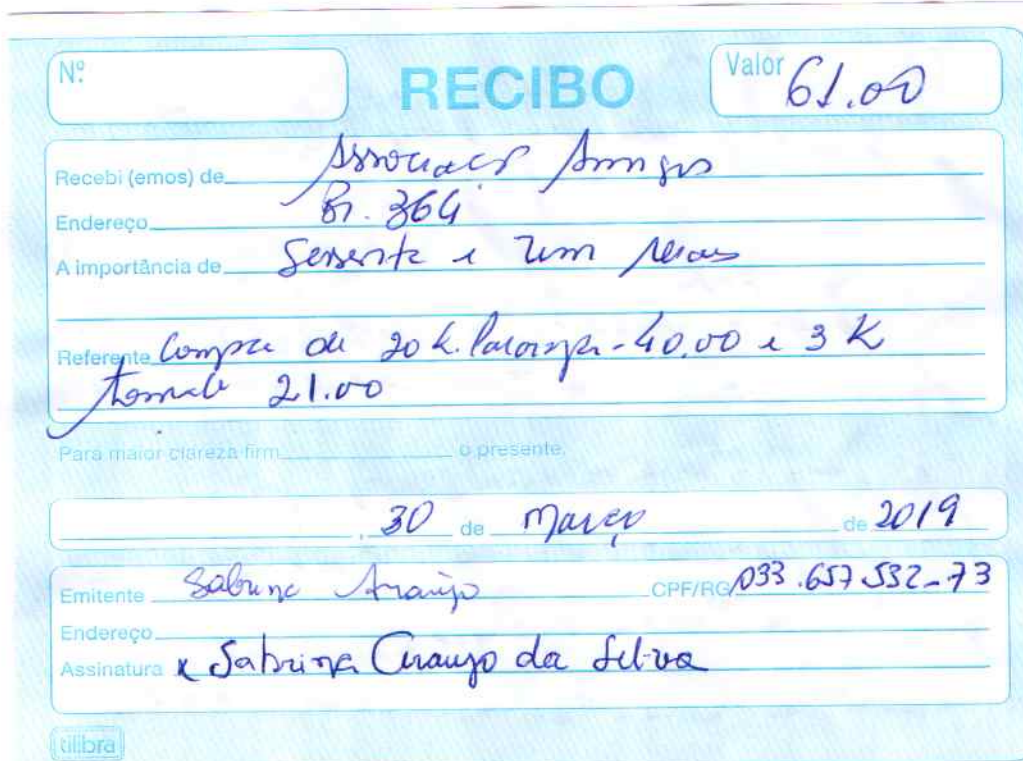 Nº RECIBO Valor 61.00
Recebi (emos) de Associacs Amigos
Endereço Br. 364
A importância de Sessenta e um reais
Referente Compra de 20 k. laranja - 40,00 e 3 K
tomate 21.00
Para maior clareza firm o presente.
, 30 de março de 2019
Emitente Sabrina Araujo CPF/RG 033.657.532-73
Endereço
Assinatura x Sabrina Araujo da Silva
tilibra